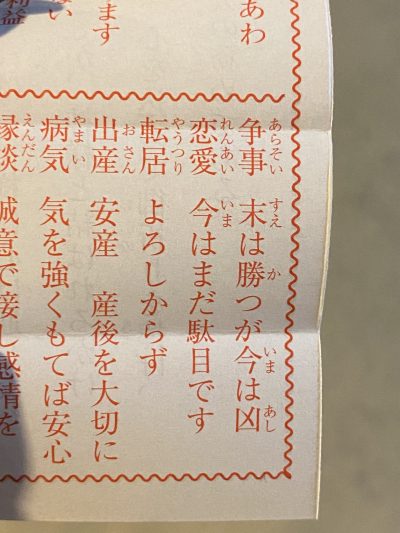 あわ
ます
争事 末は勝つが今は凶
あらそい すえ か いま あし
恋愛 今はまだ駄目です
れんあい いま
転居 よろしからず
やうつり
出産 安産 産後を大切に
おさん
病気 気を強くもてば安心
やまい
縁談 誠意で接し感情を
えんだん